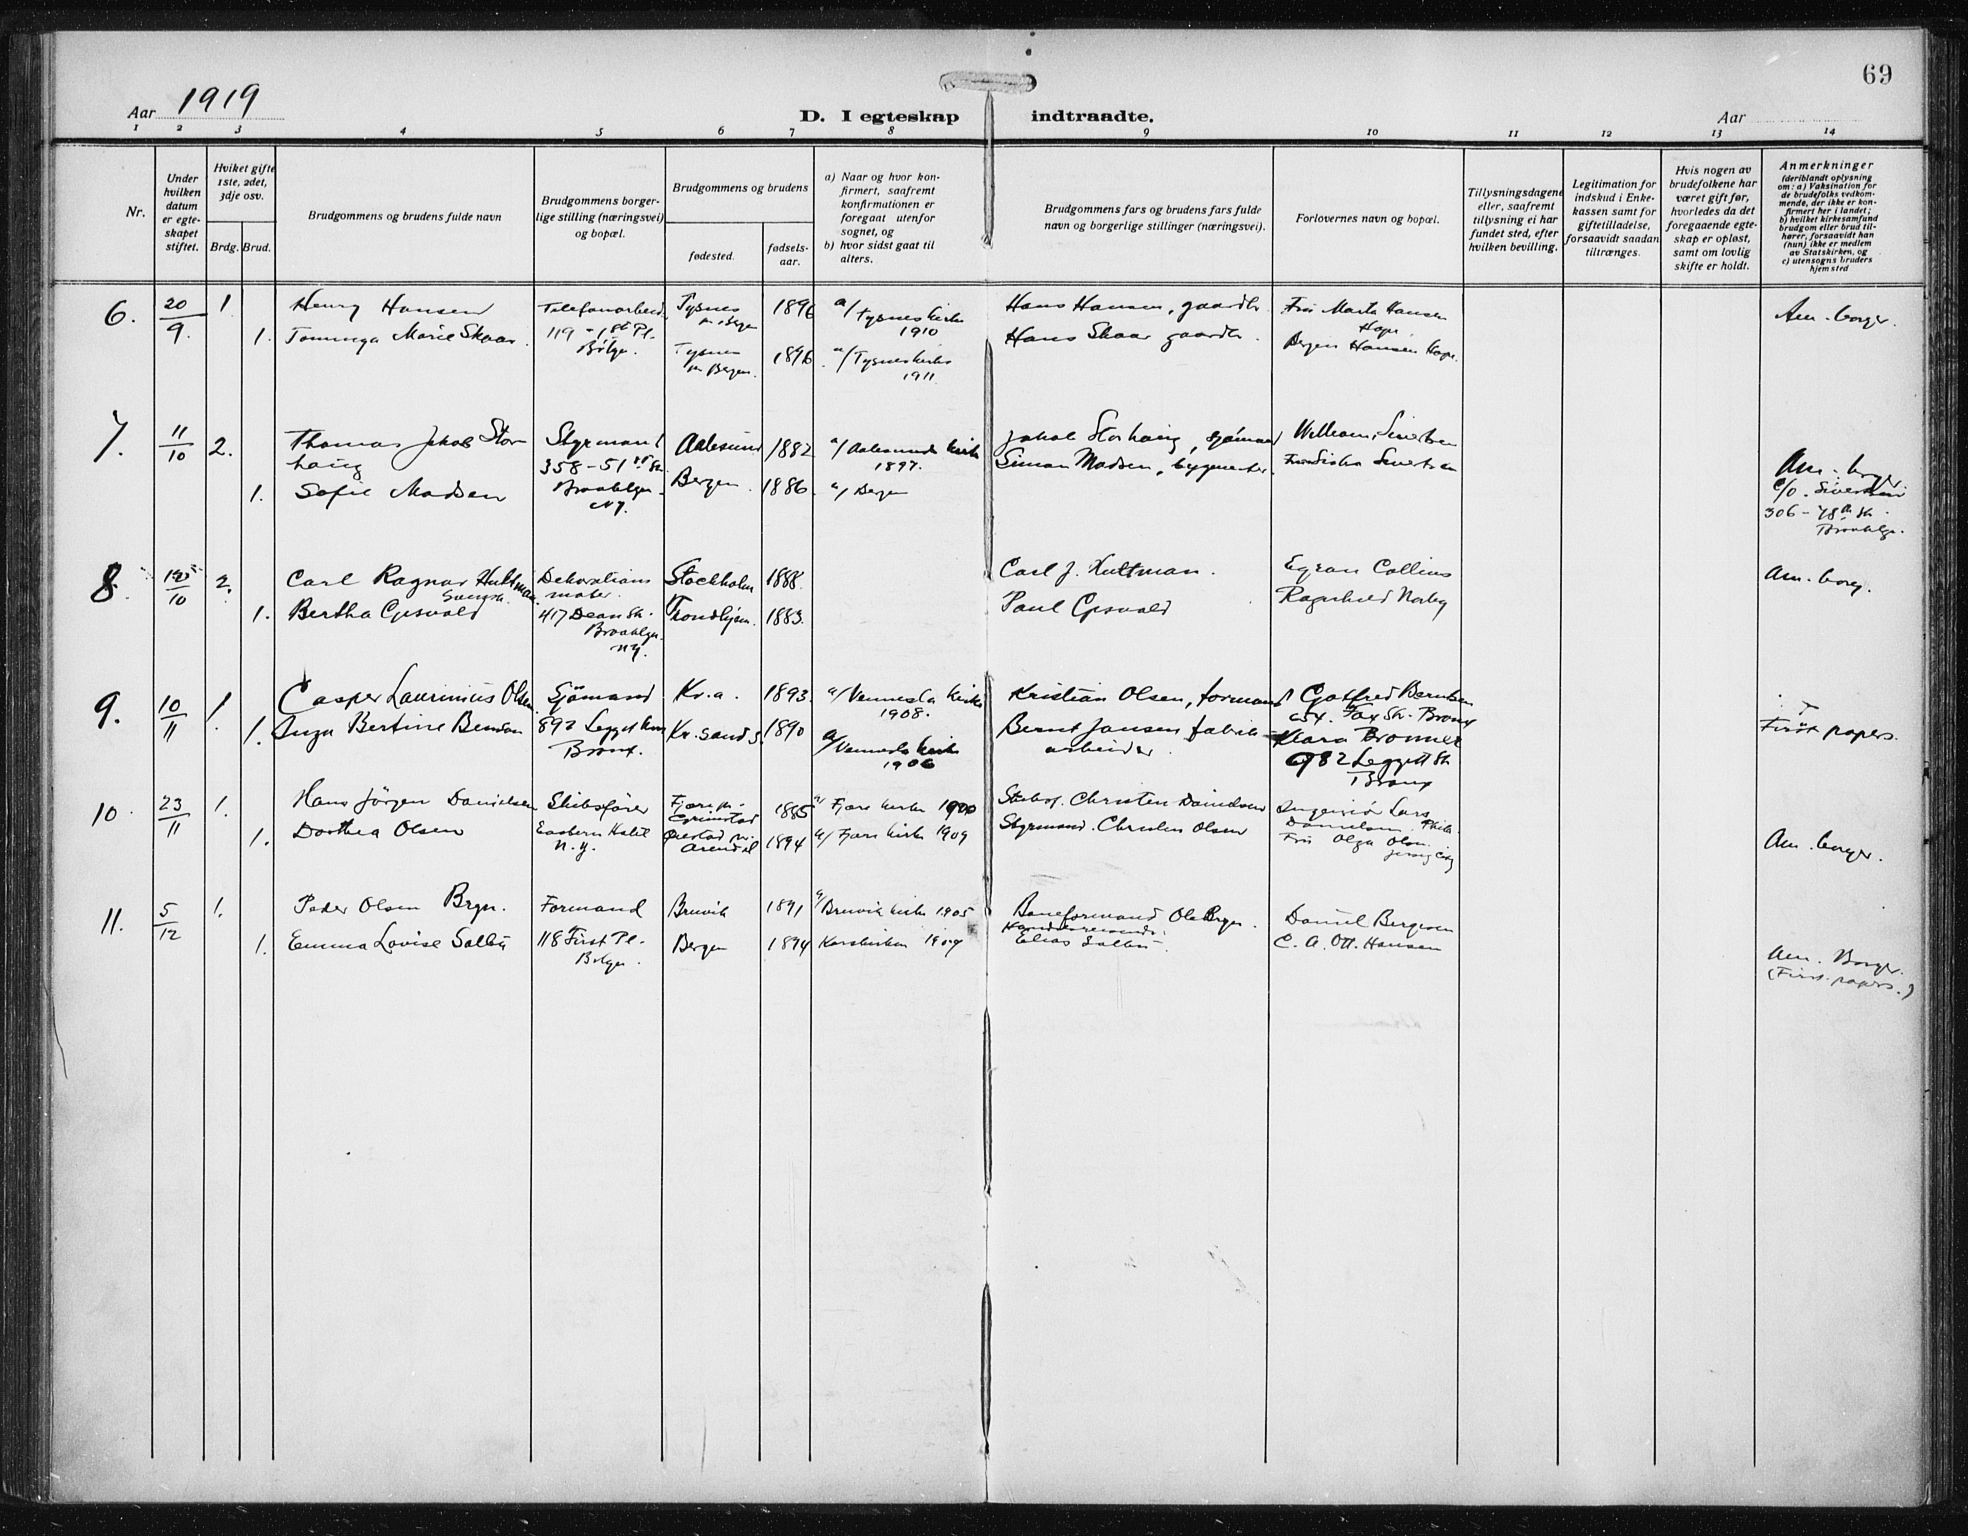 69
Aar 1919
D. I egteskap indtraadte.
Aar
1 2 3 4 5 6 7 8 9 10 11 12 13 14
Nr.
Under hvilken datum er egte-skapet stiftet.
Hviket gifte 1ste, 2det, 3dje osv.
Brdg. Brud.
Brudgommens og brudens fulde navn
Brudgommens borger-lige stilling (næringsvei) og bopæl.
Brudgommens og brudens
fødested.
fødsels-aar.
a) Naar og hvor kon-firmert, saafremt konfirmationen er foregaat utenfor sognet, og
b) hvor sidst gaat til alters.
Brudgommens fars og brudens fars fulde navn og borgerlige stillinger (næringsvei).
Forlovernes navn og bopæl.
Tillysningsdagene eller, saafremt tillysning ei har fundet sted, efter hvilken bevilling.
Legitimation for indskud i Enke-kassen samt for giftetilladelse, forsaavidt saadan tiltrænges.
Hvis nogen av brudefolkene har været gift før, hvorledes da det foregaaende egte-skap er opløst, samt om lovlig skifte er holdt.
Anmerkninger (deriblandt oplysning om: a) Vaksination for de brudefolks vedkom-mende, der ikke er kon-firmert her i landet; b) hvilket kirkesamfund brudgom eller brud til-hører, forsaavidt han (hun) ikke er medlem av Statskirken, og c) utensogns bruders hjemsted
6. 20/9 1 Henry Hansen
1. Marie Skaar
119 - 1st Pl.
Tysnes
pr. Bergen
1896
a/ Tysnes kirke
1910
Tysnes
pr. Bergen
1896
a/ Tysnes kirke
1911
Hans Hansen, gaardbr.
Hans Skaar gaardbr.
Fru Marta Hansen
Hope
Hansen Hope.
Am. borger.
7. 11/10 2. Thomas Jakob Stor-
haug
1. Sofie Madsen
Styrmand
358 - 51st St.
Brooklyn
N.Y.
Aalesund 1882 a/ Aalesunds kirke
1897.
Bergen 1886. a/ Bergen
Jakob Storhaug, sjømand
Simon Madsen, bygmester
William Sivertsen
Sivertsen
Am. borger
c/o. Sivertsen
306 - 78th St.
Brooklyn.
8. 10 2. Carl Ragnar Hultman
Svensk.
1. Bertha Gjesvold
Dekorations
maler
417 Dean St.
Brooklyn
N.Y.
Stockholm 1888.
Trondhjem. 1883.
Carl J. Hultman.
Paul Gjesvold
Collins
Ragnhild Norby
Am. borg.
9. 10/11 1. Casper Laurinius Olsen
1. Inga Bertine Bendsen
Sjömand
892 Legget
Bronx.
Kr.a. 1893. a/ Vennesla kirke
1908.
Kr.sand S. 1890 a/ Vennesla kirke
1906
Kristian Olsen, formand
Bernt Jansen fabrik-
arbeider
Gotfred Berntsen
Fox St. Bronx
Klara
982 Leggett St.
Bronx
First papers.
10. 23/11 1. Hans Jörgen Danielsen
1. Dorthea Olsen
Skibsfører
Eastern Hotel
N.Y.
Fjære pr.
Grimstad
1885 a/ Fjære kirke 1900
Øiestad pr.
Arendal
1894 a/ Fjære kirke 1909
Christen Danielsen
Styrmand. Christen Olsen
Ingeniør Lars
Danielsen. Phila.
Fru Olga Olsen
Jersey City
Am. borger.
11. 5/12 1. Peder Olsen Brgn.
1. Emma Lovise
Formand
118 First Pl.
Bklyn.
Bruvik 1891 a/ Bruvik kirke 1905
Bergen 1894 Korskirken 1909
Baneformand Ole
Elias
Daniel Bergesen
C. A. Ott. Hansen
Am. Borger.
(First papers.)